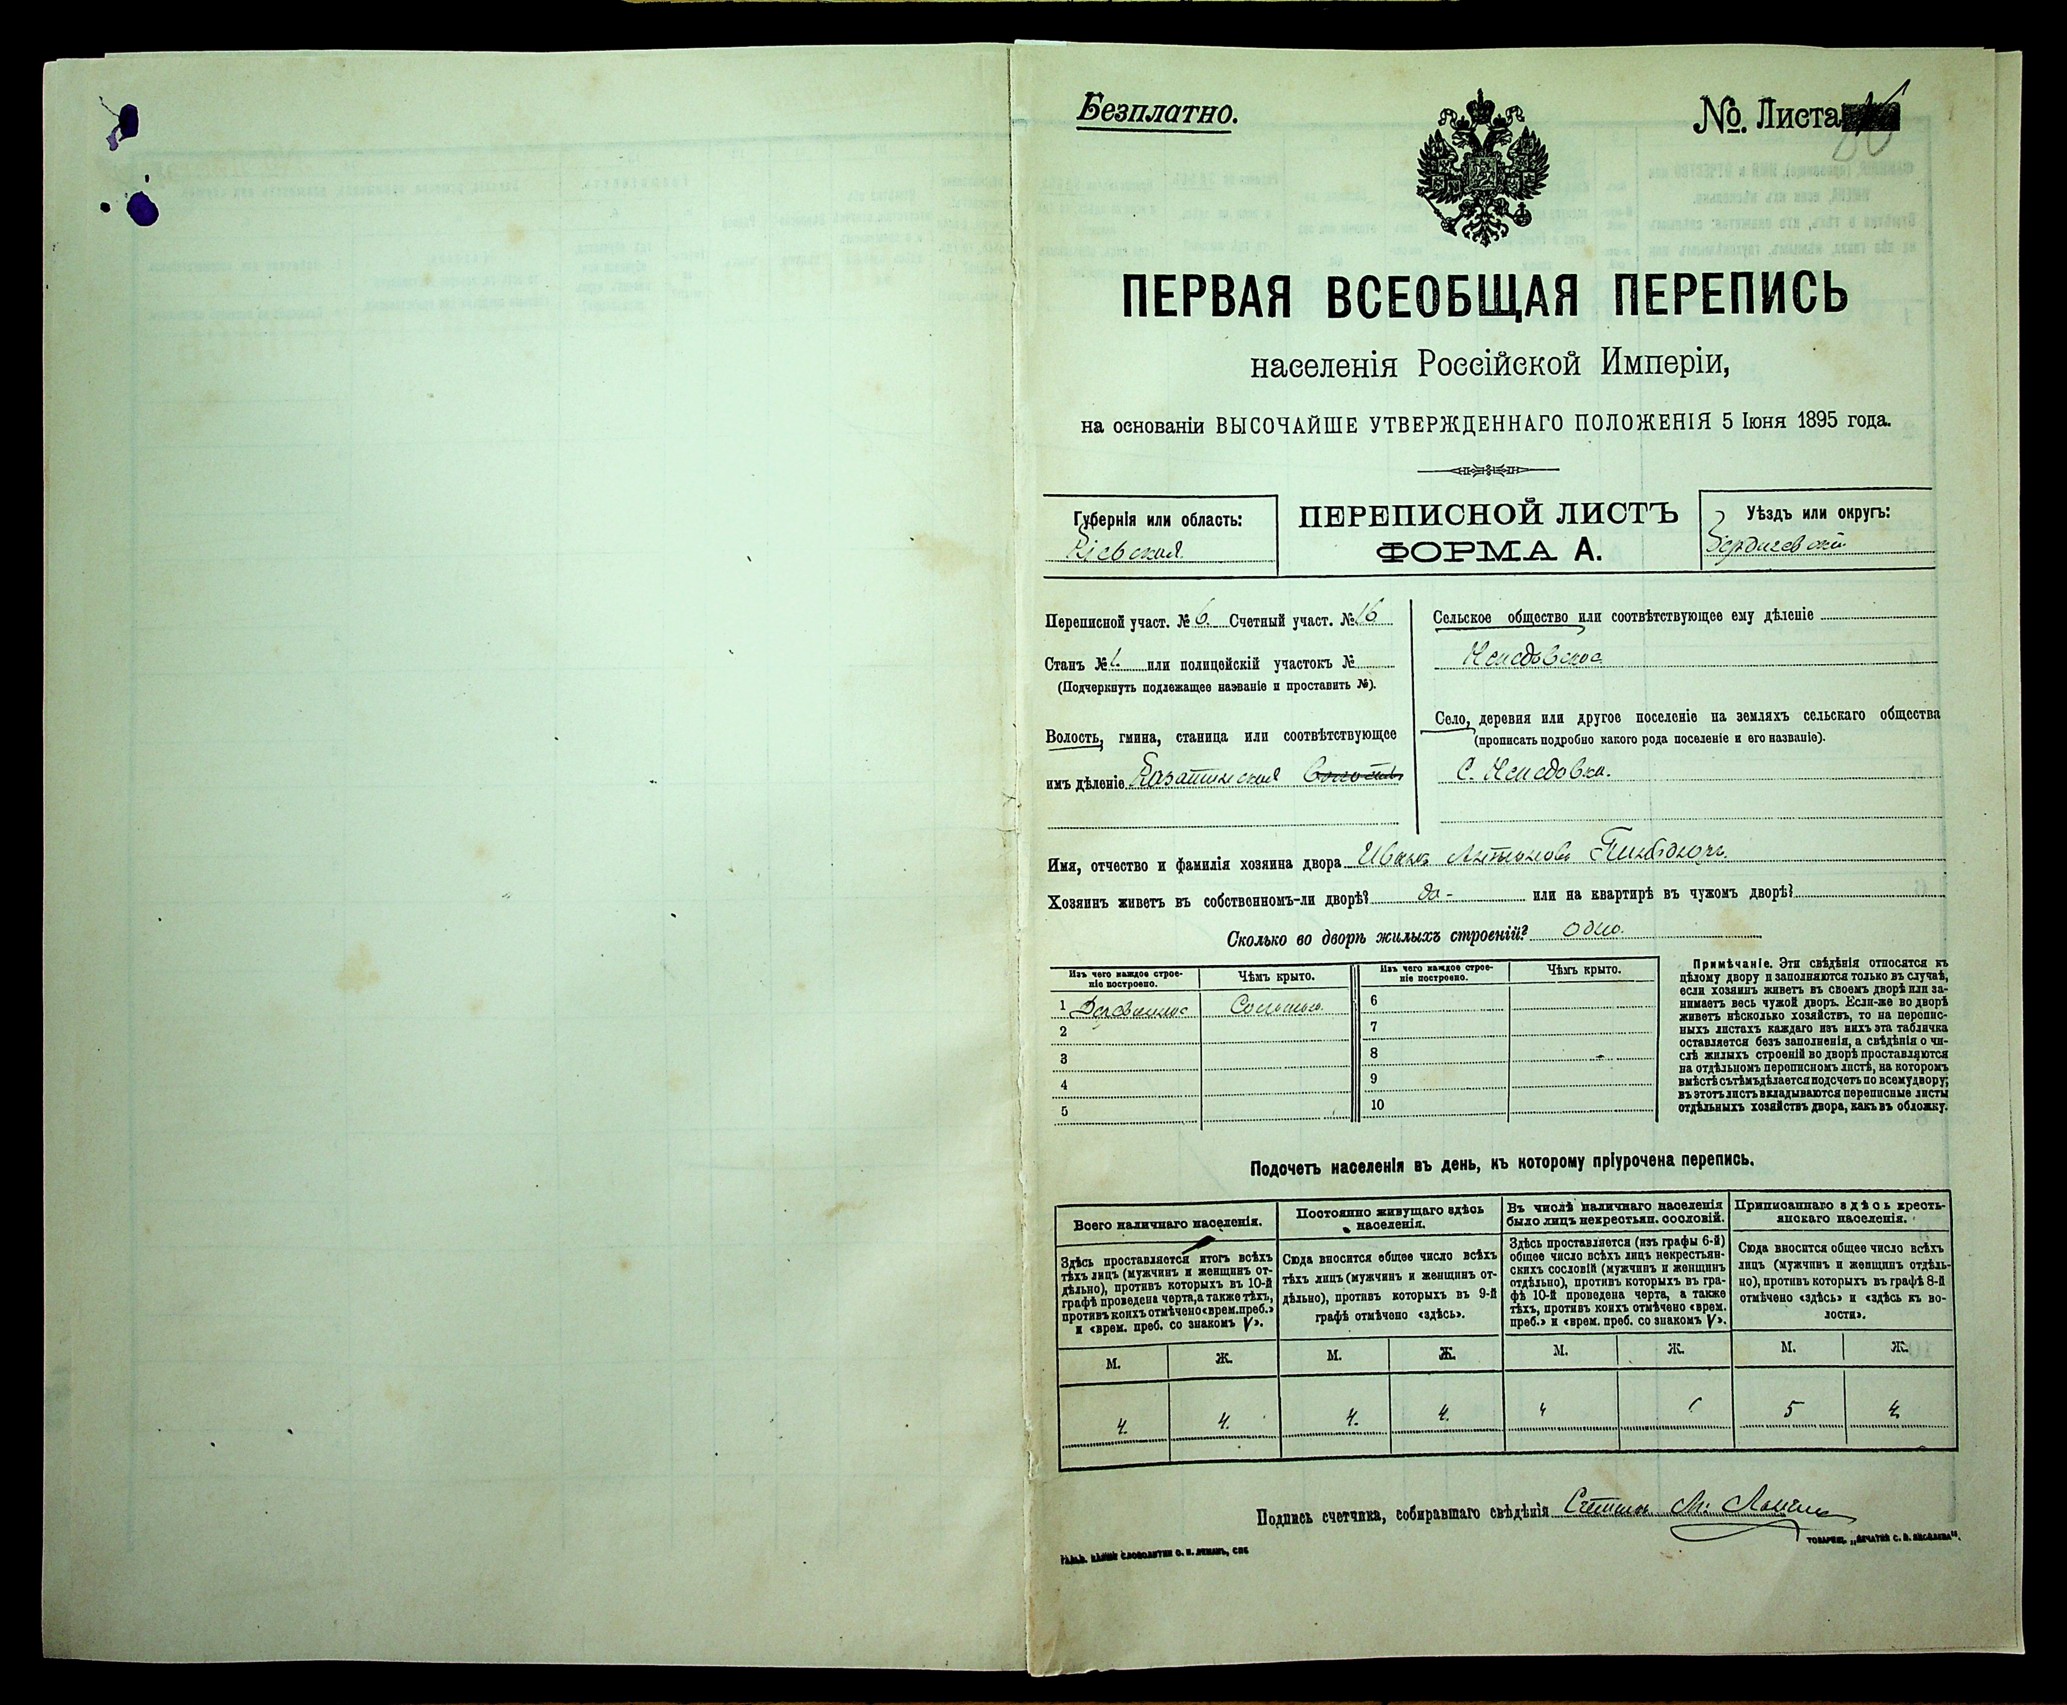 Безплатно.
№. Листа
ПЕРВАЯ ВСЕОБЩАЯ ПЕРЕПИСЬ
населенія Россійской Имперіи,
на основаніи ВЫСОЧАЙШЕ УТВЕРЖДЕННАГО ПОЛОЖЕНІЯ 5 Іюня 1895 года.
Губернія или область:
Кіевская
ПЕРЕПИСНОЙ ЛИСТЪ
ФОРМА А.
Уѣздъ или округъ:
Бердичевскій
Переписной участ. № 6. Счетный участ. № 16
Станъ № 1. или полицейскій участокъ №
(Подчеркнуть подлежащее названіе и проставить №).
Волость, гмина, станица или соотвѣтствующее
имъ дѣленіе Казатинская волость
Сельское общество или соотвѣтствующее ему дѣленіе
Село, деревня или другое поселеніе на земляхъ сельскаго общества
(прописать подробно какого рода поселеніе и его названіе).
С.
Имя, отчество и фамилія хозяина двора Иванъ Антоновъ
Хозяинъ живетъ въ собственномъ-ли дворѣ? да - или на квартирѣ въ чужомъ дворѣ?
Сколько во дворѣ жилыхъ строеній? одно.
Изъ чего каждое строеніе построено.
Чѣмъ крыто.
Изъ чего каждое строеніе построено.
Чѣмъ крыто.
1 Деревянное Соломою.
2
3
4
5
6
7
8
9
10
Примѣчаніе. Эти свѣдѣнія относятся къ
цѣлому двору и заполняются только въ случаѣ,
если хозяинъ живетъ въ своемъ дворѣ или за-
нимаетъ весь чужой дворъ. Если-же во дворѣ
живетъ нѣсколько хозяйствъ, то на перепис-
ныхъ листахъ каждаго изъ нихъ эта табличка
оставляется безъ заполненія, а свѣдѣнія о чи-
слѣ жилыхъ строеній во дворѣ проставляются
на отдѣльномъ переписномъ листѣ, на которомъ
вмѣстѣ съ тѣмъ дѣлается подсчетъ по всему двору;
въ этотъ листъ вкладываются переписные листы
отдѣльныхъ хозяйствъ двора, какъ въ обложку.
Подсчетъ населенія въ день, къ которому пріурочена перепись.
Всего наличнаго населенія.
Здѣсь проставляется итогъ всѣхъ
тѣхъ лицъ (мужчинъ и женщинъ от-
дѣльно), противъ которыхъ въ 10-й
графѣ проведена черта, а также тѣхъ,
противъ коихъ отмѣчено «врем. преб.»
и «врем. преб. со знакомъ V».
Постоянно живущаго здѣсь
населенія.
Сюда вносится общее число всѣхъ
тѣхъ лицъ (мужчинъ и женщинъ от-
дѣльно), противъ которыхъ въ 9-й
графѣ отмѣчено «здѣсь».
Въ числѣ наличнаго населенія
было лицъ некрестьян. сословій.
Здѣсь проставляется (изъ графы 6-й)
общее число всѣхъ лицъ некрестьян-
скихъ сословій (мужчинъ и женщинъ
отдѣльно), противъ которыхъ въ гра-
фѣ 10-й проведена черта, а также
тѣхъ, противъ коихъ отмѣчено «врем.
преб.» и «врем. преб. со знакомъ V».
Приписаннаго здѣсь кресть-
янскаго населенія.
Сюда вносится общее число всѣхъ
лицъ (мужчинъ и женщинъ отдѣль-
но), противъ которыхъ въ графѣ 8-й
отмѣчено «здѣсь» и «здѣсь къ во-
лости».
М. Ж. М. Ж. М. Ж. М. Ж.
4. 4. 4. 4. 5 4
Подпись счетчика, собиравшаго свѣдѣнія
ТОВАРИЩ. „ПЕЧАТНЯ С. П. ЯКОВЛЕВА“.